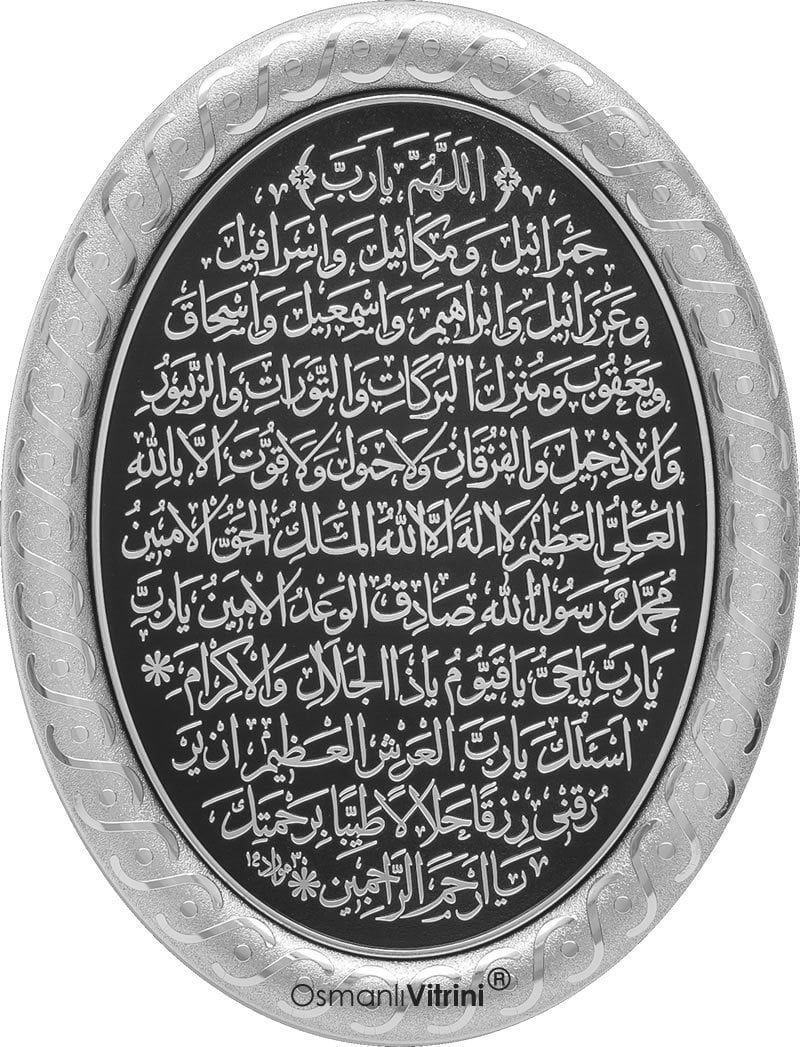 اَللّٰهُمَّ يَارَبِّ
جَبْرَائِيلَ وَمِكَائِيلَ وَاِسْرَافِيلَ
وَعَزْرَائِيلَ وَاِبْرَاهِيمَ وَاِسْمٰعِيلَ وَاِسْحَاقَ
وَيَعْقُوبَ وَمُنْزِلَ الْبَرَكَاتِ وَالتَّوْرَاتِ وَالزَّبُورِ
وَالْاِنْجِيلِ وَالْفُرْقَانِ وَلَاحَوْلَ وَلَا قُوَّتَ اِلَّا بِاللّٰهِ
الْعَلِيِّ الْعَظِيمِ لَا اِلٰهَ اِلَّا اللّٰهُ الْمَلِكُ الْحَقُّ الْاَمُبِينُ
مُحَمَّدٌ رَسُولُ اللّٰهِ صَادِقُ الْوَعْدِ الْاَمِينُ يَارَبِّ
يَارَبِّ يَاحَيُّ يَاقَيُّومُ يَاذَا الْجَلَالِ وَالْاِكْرَامِ
اَسْئَلُكَ يَارَبَّ الْعَرْشِ الْعَظِيمِ اَنْ يَرْ
زُقَنِى رِزْقًا حَلَالًا طَيِّبًا بِرَحْمَتِكَ
يَا اَرْحَمَ الرَّاحِمِينَ
OsmanlıVitrini®